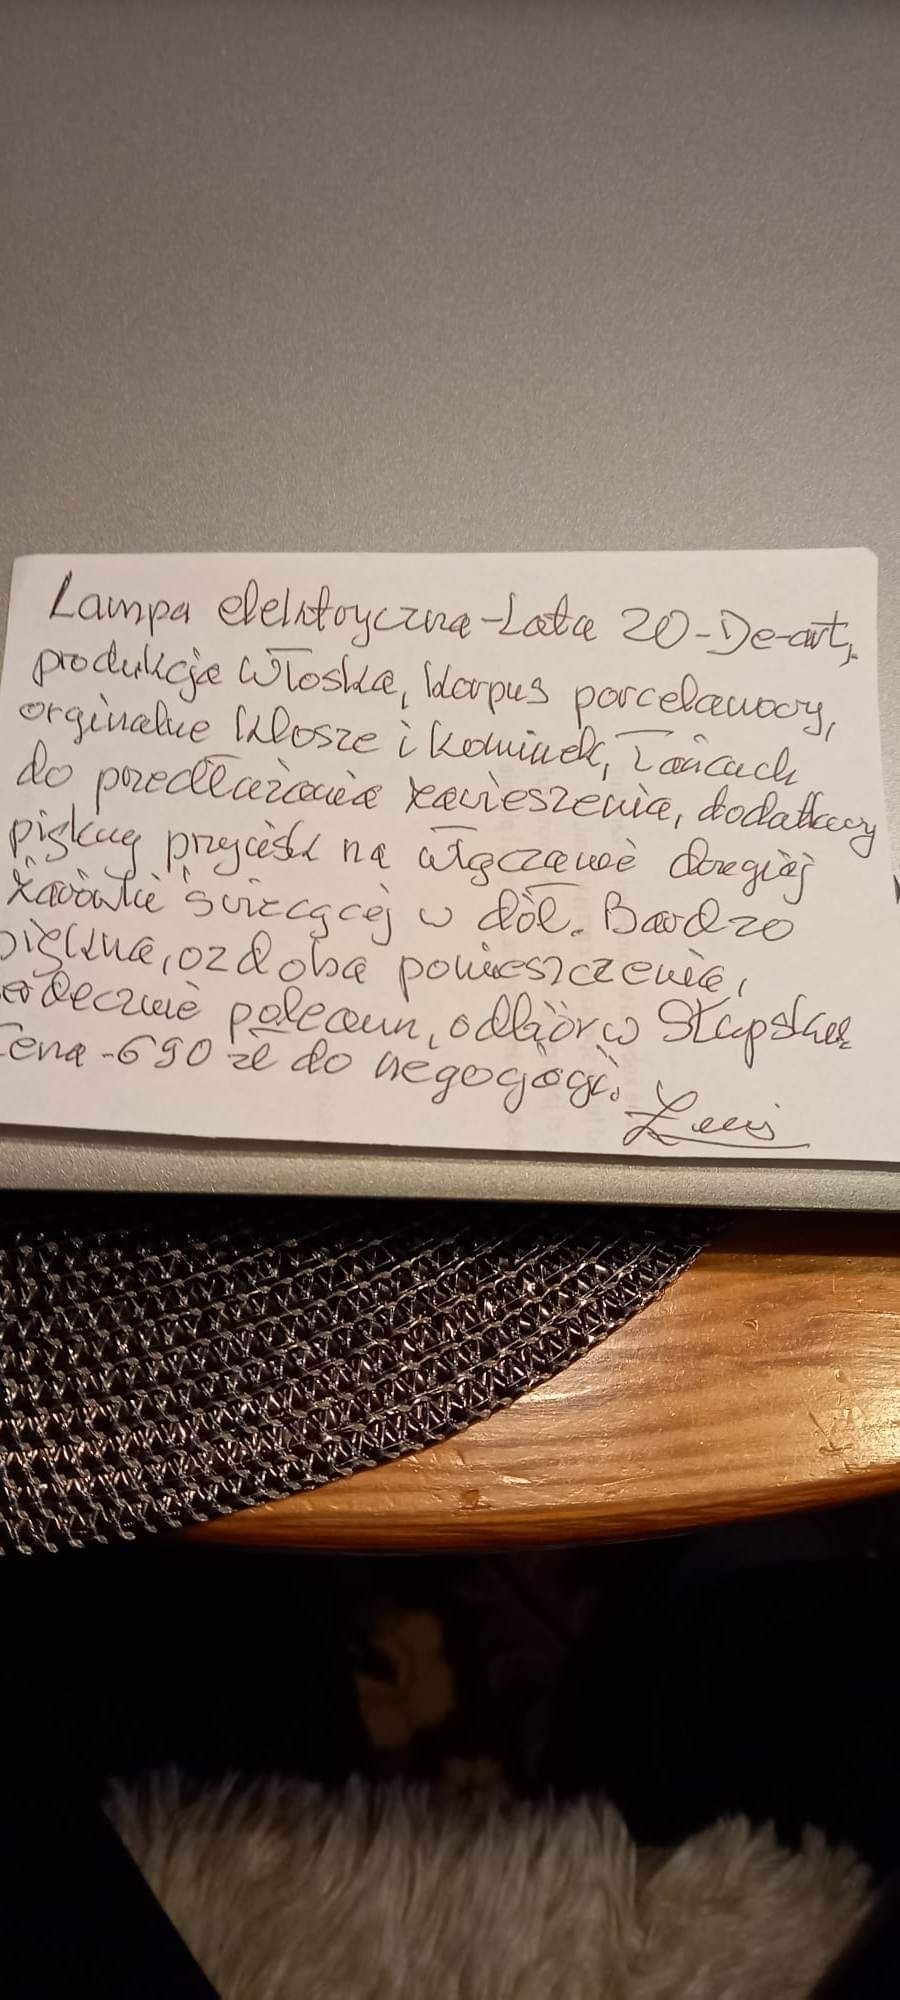 Lampa elektryczna - Lata 20 - De-art,
produkcja włoska, korpus porcelanowy,
orginalne klosze i kominek, łańcuch
do przedłużania zawieszenia, dodatkowy
piękny przycisk na włączanie drugiej
żarówki świecącej w dół. Bardzo
piękna, ozdoba pomieszczenia,
serdecznie polecam, odbiór w Słupsku
Cena - 690 zł do negogacji.